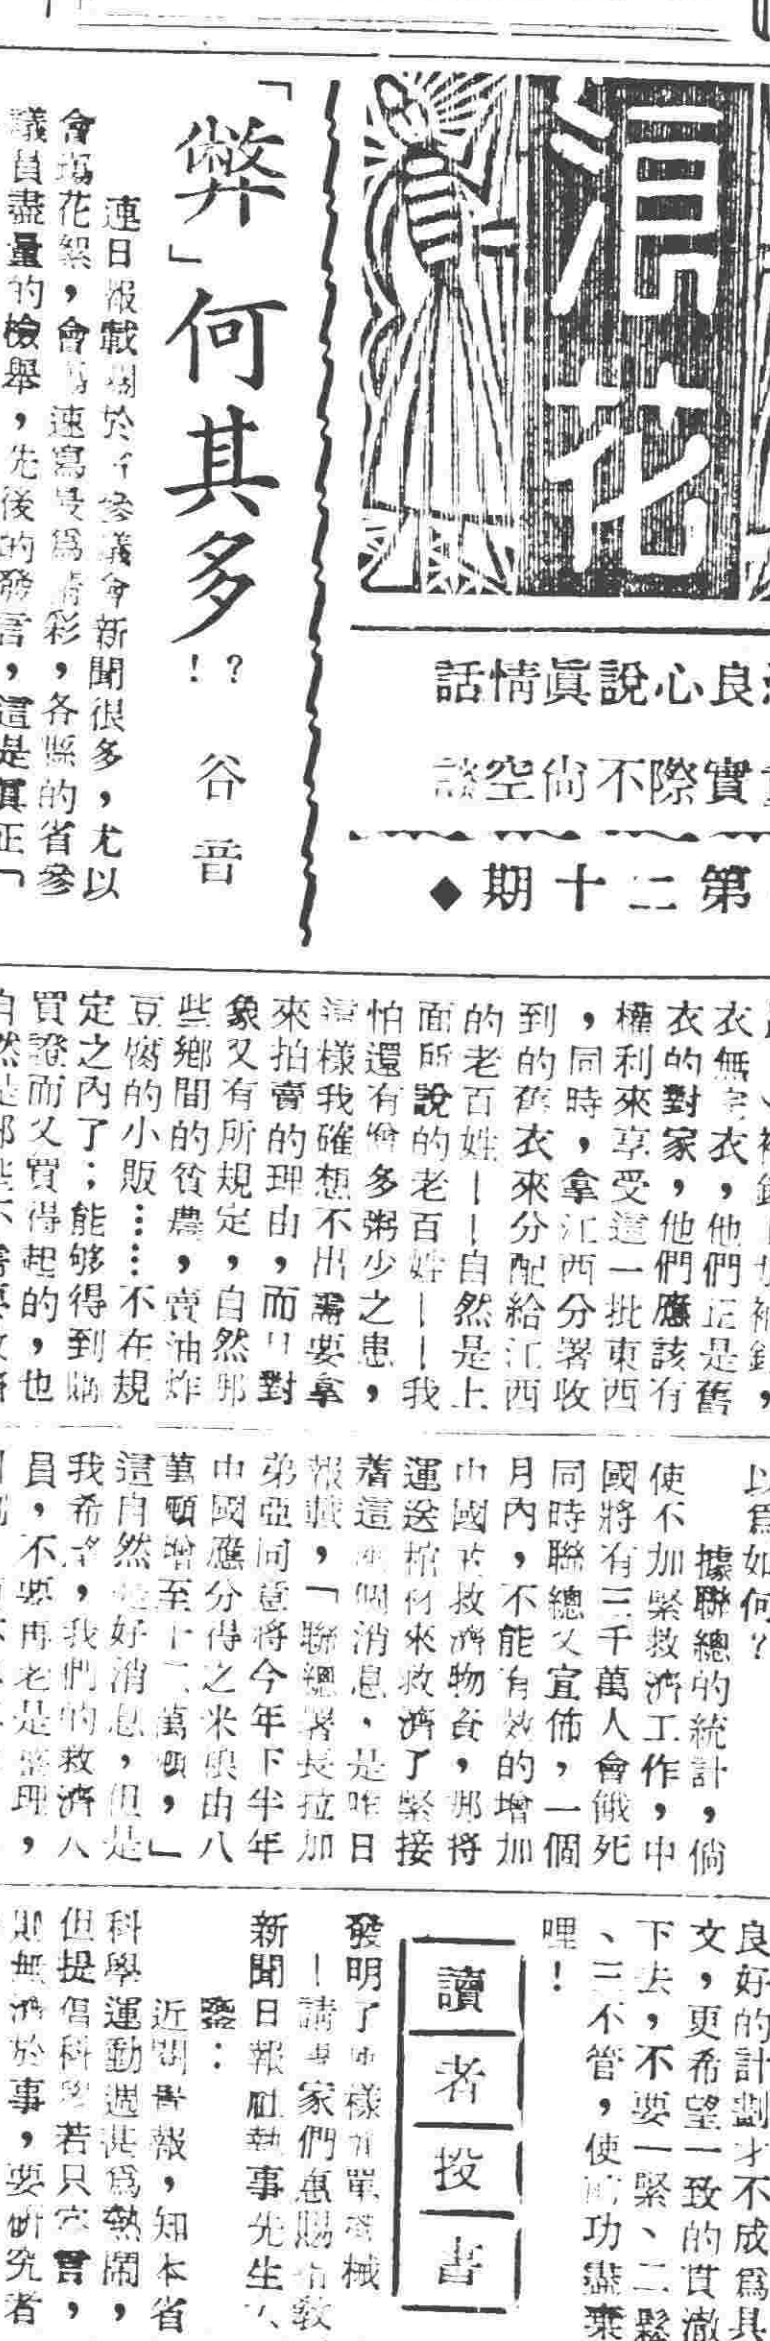 浪花
良心說眞情話
實際不尙空談
第二十期◆
「弊」何其多
！？
谷音
連日報載關於省參議會新聞很多，尤以
會場花絮，會場速寫最爲精彩，各縣的省參
議員盡量的檢舉，先後的發言，這是眞正「
衣無完衣，他們正是舊
衣的對家，他們應該有
權利來享受這一批東西
，同時，拿江西分署收
到的舊衣來分配給江西
的老百姓——自然是上
面所說的老百姓——我
怕還有僧多粥少之患，
這樣我確想不出需要拿
來拍賣的理由，而且對
象又有所規定，自然那
些鄉間的貧農，賣油炸
豆腐的小販……不在規
定之內了；能够得到購
買證而又買得起的，也
以爲如何？
據聯總的統計，倘
使不加緊救濟工作，中
國將有三千萬人會餓死
同時聯總又宣佈，一個
月內，不能有效的增加
中國的救濟物資，那將
運送棺材來救濟了緊接
着這兩個消息，是昨日
報載，「聯總署長拉加
弟亞同意將今年下半年
中國應分得之米糧由八
萬噸增至十二萬噸，」
這自然是好消息，但是
我希望，我們的救濟人
員，不要再老是整理，
良好的計劃才不成爲具
文，更希望一致的貫澈
下去，不要一緊、二鬆
、三不管，使前功盡棄
哩！
讀者投書
發明了兩樣加單機械
—請專家們惠賜指敎
新聞日報社執事先生大
鑒：
近閱貴報，知本省
科學運動週甚爲熱鬧，
但提倡科學若只空言，
則無濟於事，要研究者